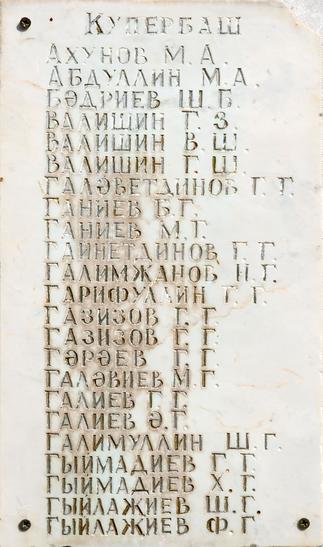 КУПЕРБАШ
АХУНОВ М.А.
АБДУЛЛИН М.А.
БӘДРИЕВ Ш.Б.
ВАЛИШИН Г.З.
ВАЛИШИН В.Ш.
ВАЛИШИН Г.Ш
ГАЛӘВЕТДИНОВ Г.Г.
ГАНИЕВ Б.Г.
ГАНИЕВ М.Г.
ГАИНЕТДИНОВ Г.Г.
ГАЛИМЖАНОВ Н.Г.
ГАРИФУЛЛИН Г.Г.
ГАЗИЗОВ Г.Г
ГАЗИЗОВ Г.Г.
ГӘРӘЕВ Г.Г
ГАЛӘВИЕВ М.Г.
ГАЛИЕВ Г.Г.
ГАЛИЕВ Ә.Г.
ГАЛИМУЛЛИН Ш.Г.
ГЫЙМАДИЕВ Г.Г.
ГЫЙМАДИЕВ Х.Г.
ГЫЙЛАҖИЕВ Ш.Г.
ГЫЙЛАҖИЕВ Ф.Г